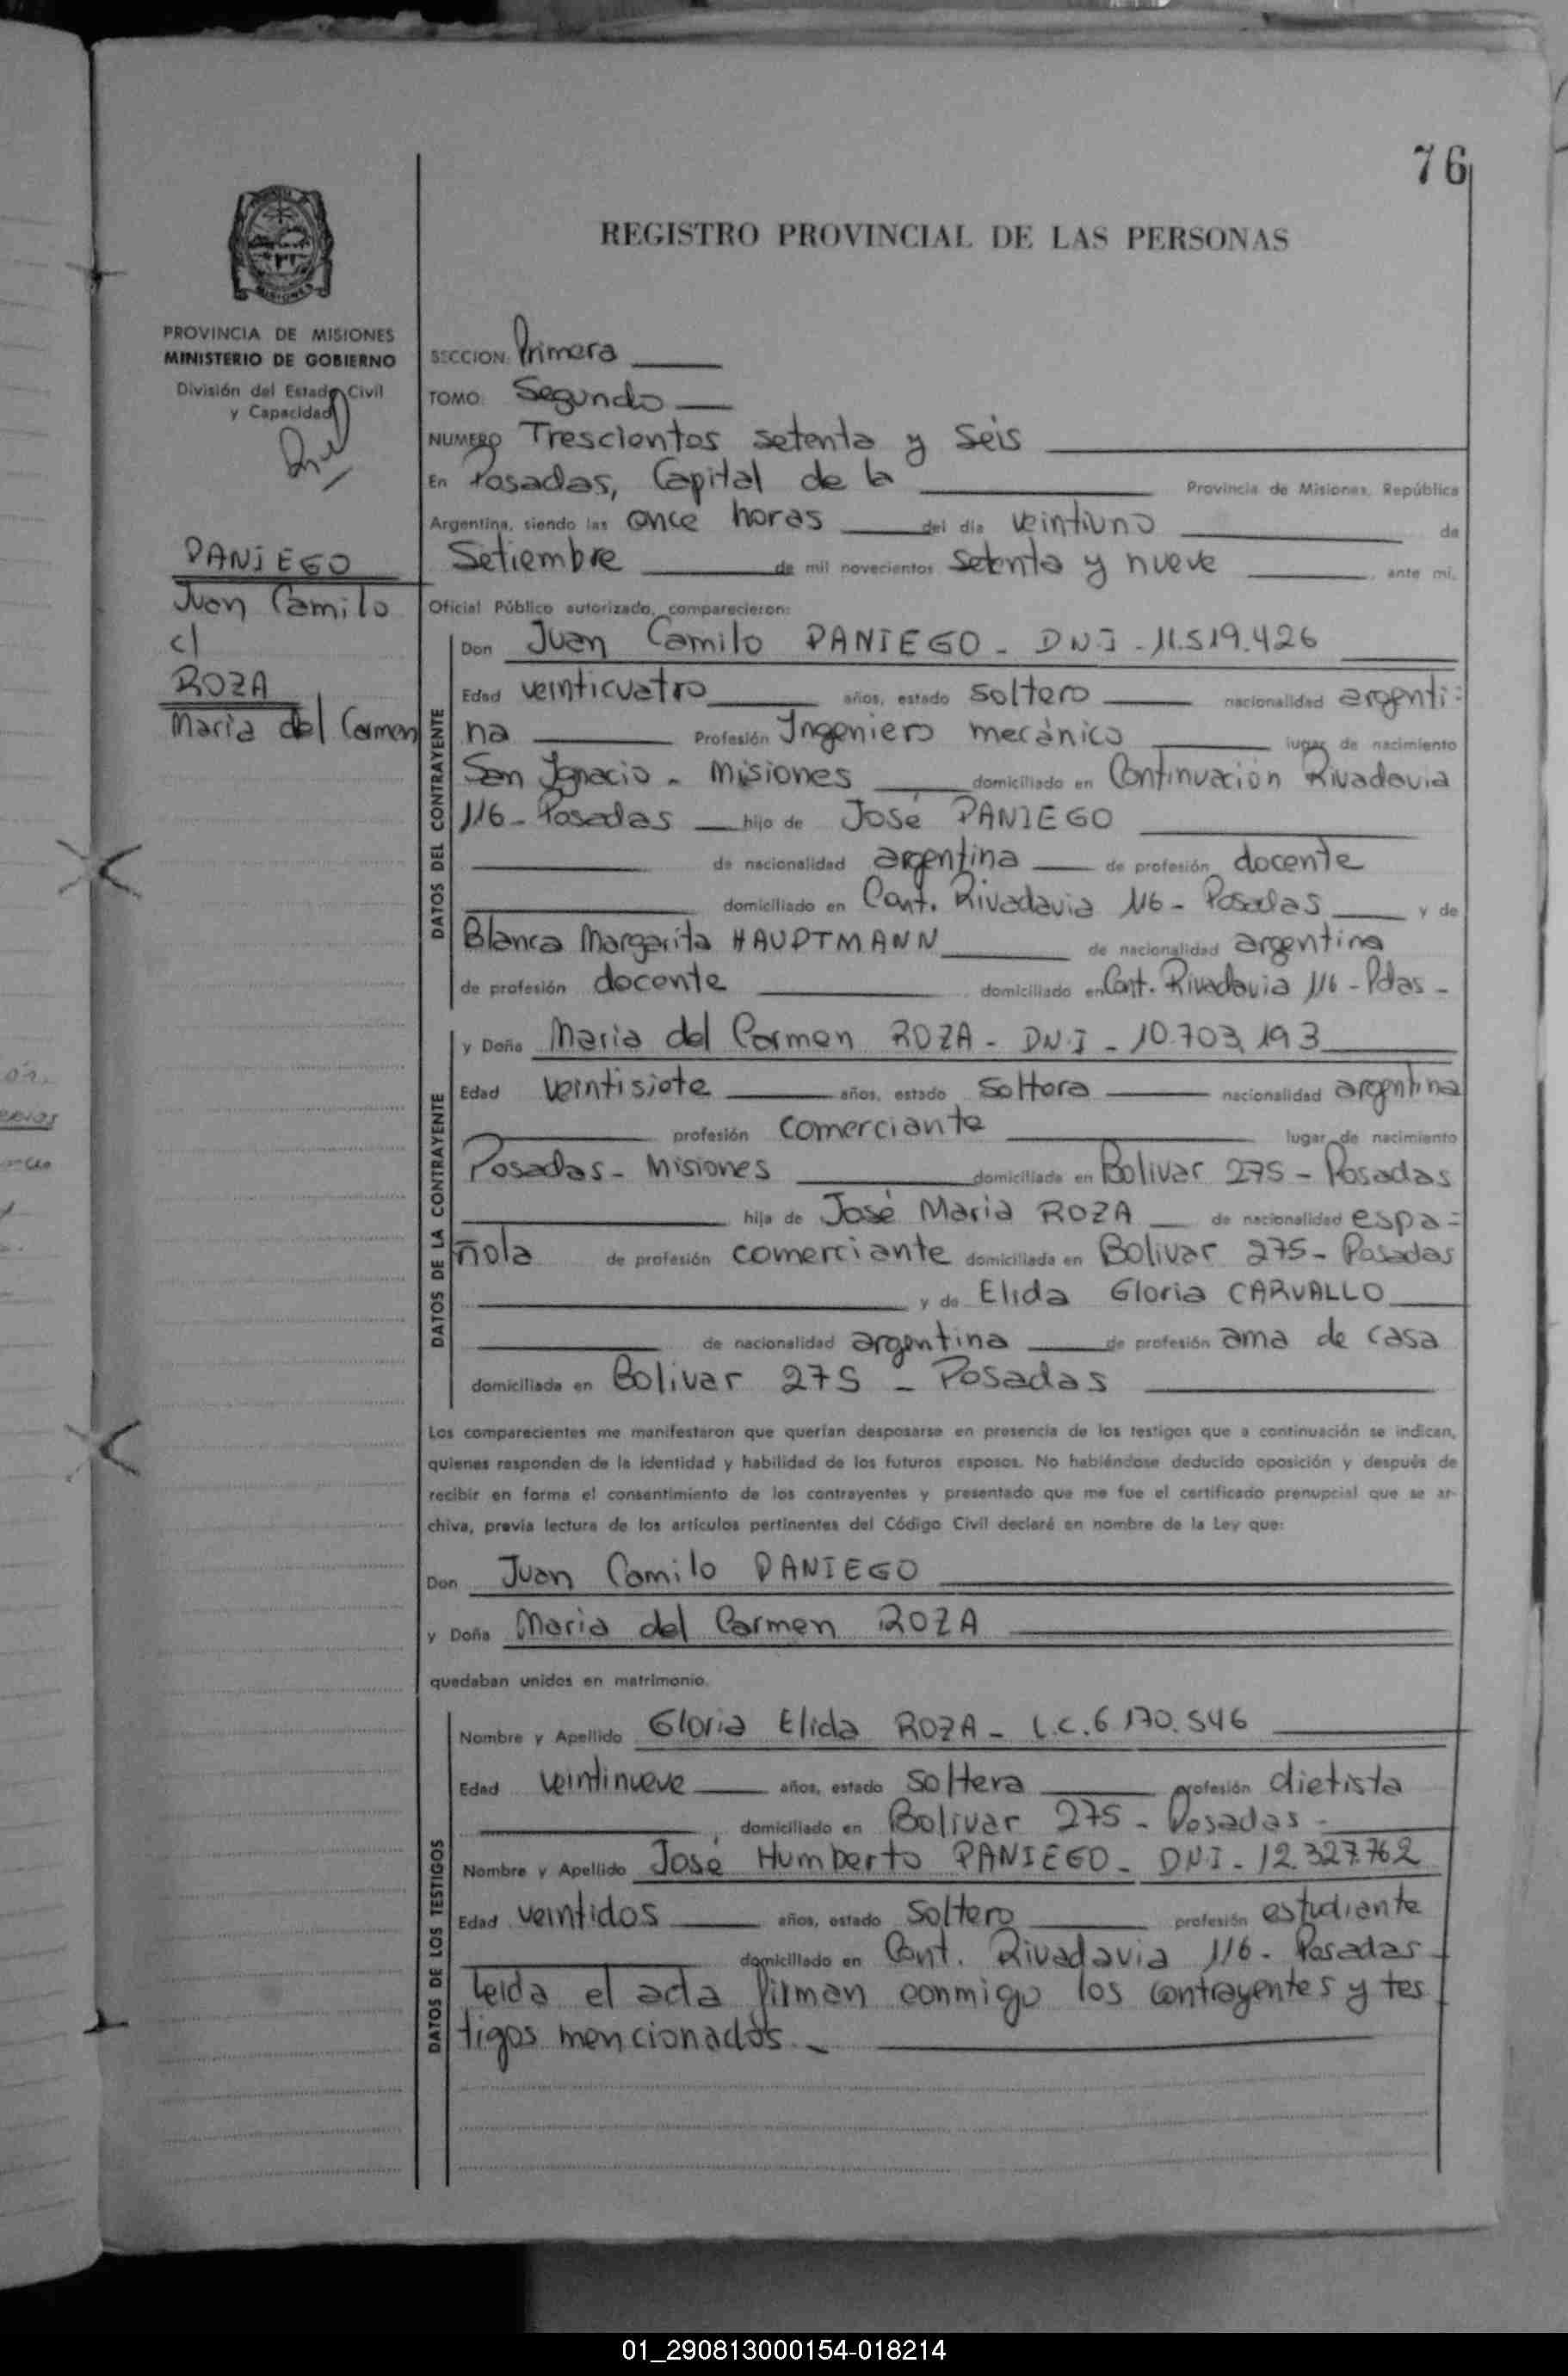 76
REGISTRO PROVINCIAL DE LAS PERSONAS
MISIONES
PROVINCIA DE MISIONES
MINISTERIO DE GOBIERNO
División del Estado Civil
y Capacidad
PANIEGO
Juan Camilo
c/
ROZA
Maria del Carmen
SECCION: Primera
TOMO: Segundo
NUMERO Trescientos setenta y seis
En Posadas, Capital de la Provincia de Misiones, República
Argentina, siendo las once horas del día veintiuno de
Setiembre de mil novecientos setenta y nueve, ante mí,
Oficial Público autorizado, comparecieron:
DATOS DEL CONTRAYENTE
Don Juan Camilo PANIEGO - DNI - 11.519.426
Edad veinticuatro años, estado soltero nacionalidad argenti=
na Profesión Ingeniero mecánico lugar de nacimiento
San Ignacio - Misiones domiciliado en Continuación Rivadavia
116 - Posadas hijo de José PANIEGO
de nacionalidad argentina de profesión docente
domiciliado en Cont. Rivadavia 116 - Posadas y de
Blanca Margarita HAUPTMANN de nacionalidad argentina
de profesión docente domiciliado en Cont. Rivadavia 116 - Pdas -
DATOS DE LA CONTRAYENTE
y Doña Maria del Carmen ROZA - DNI - 10.703.193
Edad veintisiete años, estado soltera nacionalidad argentina
profesión comerciante lugar de nacimiento
Posadas - Misiones domiciliada en Bolivar 275 - Posadas
hija de José Maria ROZA de nacionalidad espa=
ñola de profesión comerciante domiciliada en Bolivar 275 - Posadas
y de Elida Gloria CARVALLO
de nacionalidad argentina de profesión ama de casa
domiciliada en Bolivar 275 - Posadas
Los comparecientes me manifestaron que querían desposarse en presencia de los testigos que a continuación se indican,
quienes responden de la identidad y habilidad de los futuros esposos. No habiéndose deducido oposición y después de
recibir en forma el consentimiento de los contrayentes y presentado que me fue el certificado prenupcial que se ar-
chiva, previa lectura de los artículos pertinentes del Código Civil declaré en nombre de la Ley que:
Don Juan Camilo PANIEGO
y Doña Maria del Carmen ROZA
quedaban unidos en matrimonio.
DATOS DE LOS TESTIGOS
Nombre y Apellido Gloria Elida ROZA - L.C. 6.170.546
Edad veintinueve años, estado soltera profesión dietista
domiciliado en Bolivar 275 - Posadas -
Nombre y Apellido José Humberto PANIEGO - DNI - 12.327.762
Edad veintidos años, estado soltero profesión estudiante
domiciliado en Cont. Rivadavia 116 - Posadas -
Leida el acta firman conmigo los contrayentes y tes
tigos mencionados. -
01_290813000154-018214